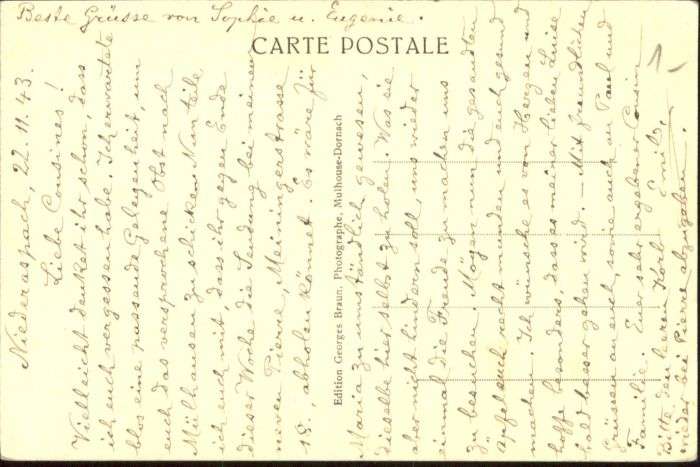 Beste Grüsse von Sophie u. Eugenie.
CARTE POSTALE
Niederaspach, 22.11.43.
Liebe Cousines!
Vielleicht denket ihr schon, dass
ich euch vergessen habe. Ich erwartete
blos eine passende Gelegenheit, um
euch das versprochene Obst nach
Mülhausen zu schicken. Nun teile
ich euch mit, dass ihr gegen Ende
dieser Woche die Sendung bei meinem
neven Pierre, Meiningerstrasse
18, abholen könnet. Es wäre für
Edition Georges Braun, Photographe, Mulhouse-Dornach
Maria zu umständlich gewesen,
dieselbe hier selbst zu holen. Was sie
aber nicht hindern soll, uns wieder
einmal die Freude zu machen uns
zu besuchen. Mögen nun die gesandten
Äpfel euch recht munden und euch gesund
machen. Ich wünsche es von Herzen und
hoffe besonders, dass es meiner lieben Luise
bald besser gehen wird. – Mit freundlichen
Grüssen an euch, sowie auch an Paul und
Familie. Euer sehr ergebener Cousin
Bitte den leeren Korb Emil.
wieder bei Pierre abzugeben.